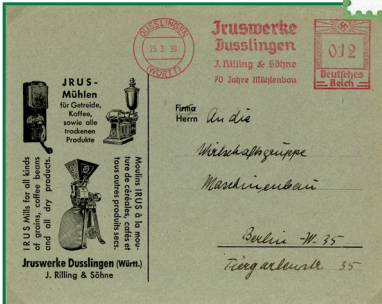 DUSSLINGEN
(WÜRTT)
Jruswerke
Dusslingen
J. Rilling & Söhne
70 Jahre Mühlenbau
012
Deutsches
Reich
JRUS-
Mühlen
für Getreide,
Kaffee,
sowie alle
trockenen
Produkte
IRUS Mills for all kinds
of grains, coffee beans
and all dry products.
Moulins IRUS à la mou-
ture de céréales, cafés et
tous autres produits secs.
Jruswerke Dusslingen (Württ.)
J. Rilling & Söhne
Firma
Herrn An die
Wirtschaftsgruppe
Maschinenbau
Berlin W. 35
Tiergartenstr 35